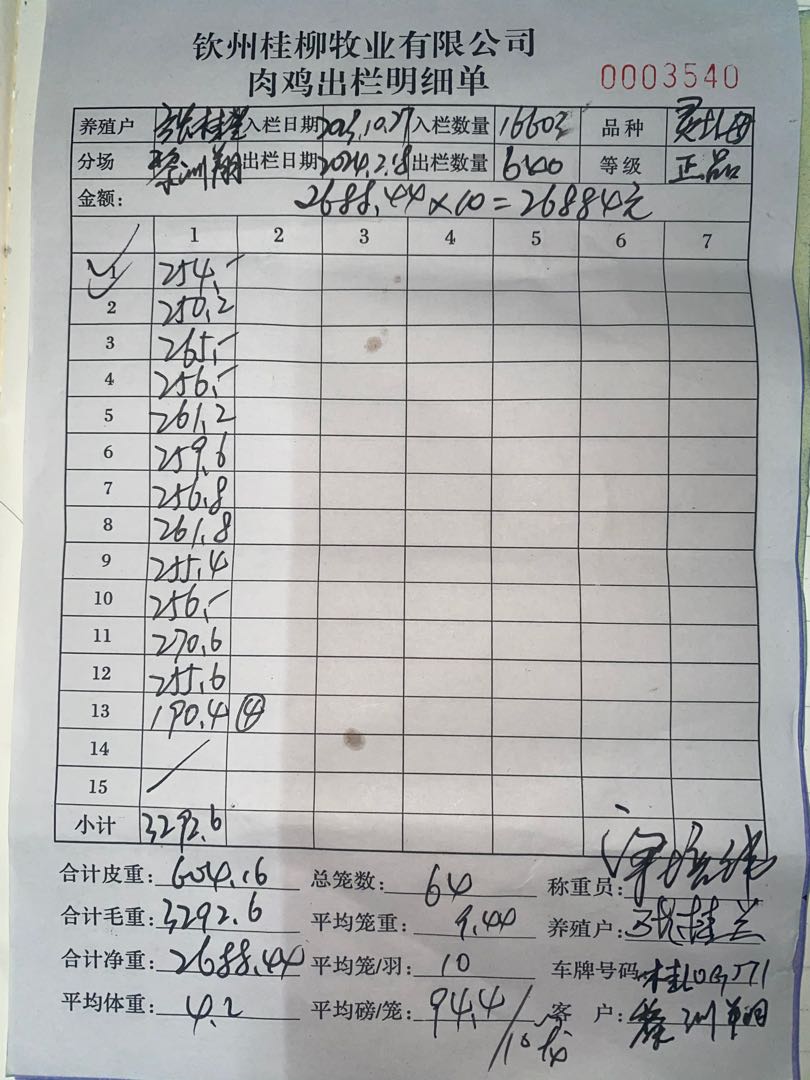 钦州桂柳牧业有限公司
肉鸡出栏明细单 0003540
养殖户 张桂兰 入栏日期 2023.10.27 入栏数量 16603 品种
分场 黎洲翔 出栏日期 2024.2.18 出栏数量 640 等级 正品
金额: 2688.44×10=26884元
1 2 3 4 5 6 7
1 254.-
2 250.2
3 265.-
4 256.-
5 261.2
6 259.6
7 256.8
8 261.8
9 255.4
10 256.-
11 270.6
12 255.6
13 190.4 ④
14
15
小计 3292.6
合计皮重: 604.16 总笼数: 64 称重员:
合计毛重: 3292.6 平均笼重: 9.44 养殖户: 张桂兰
合计净重: 2688.44 平均笼/羽: 10 车牌号码
平均体重: 4.2 平均磅/笼: 94.4/10 客 户: 黎洲翔